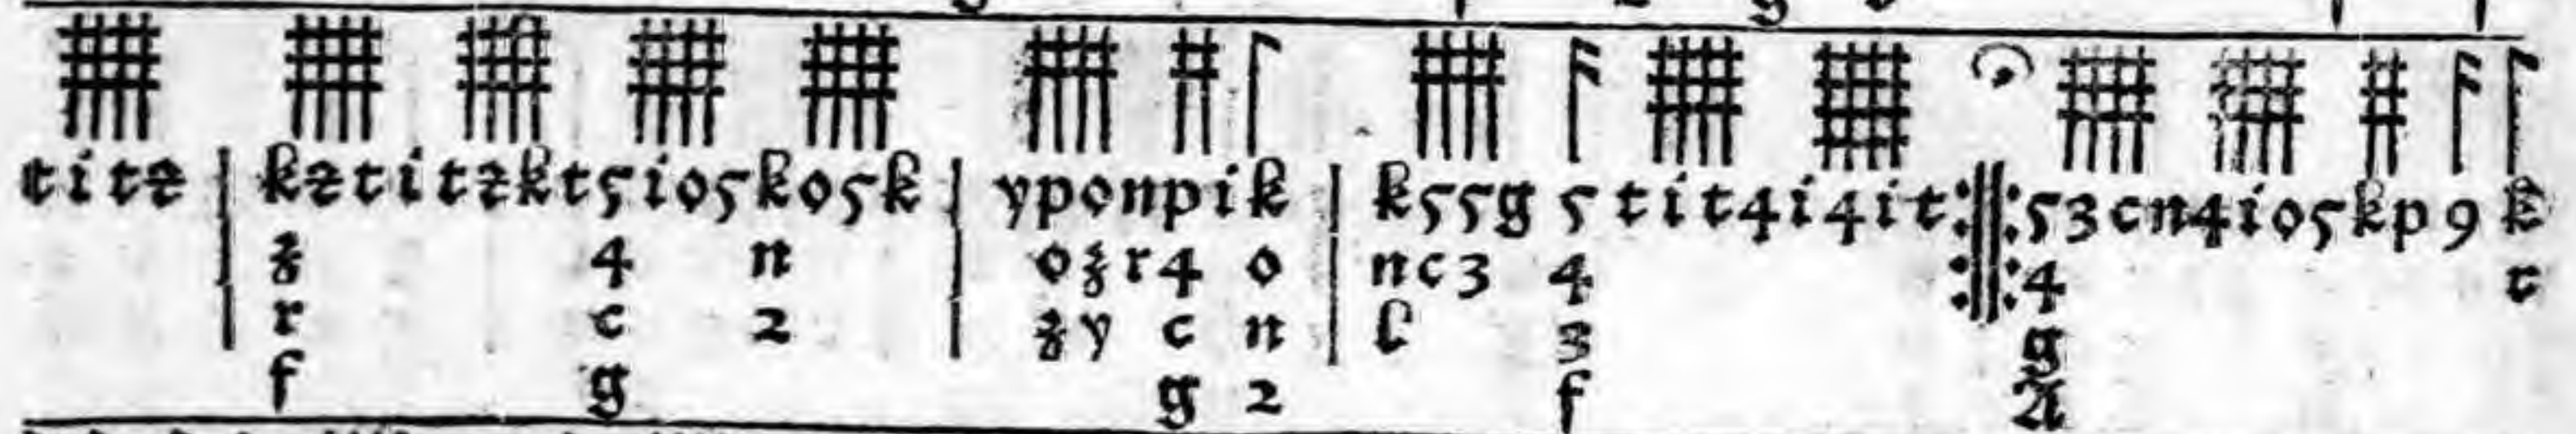 t i t z | k z t i t z k t 5 i o 5 k o 5 k | y p o n p i k | k 5 5 g 5 t i t 4 i 4 i t :||: 5 3 c n 4 i o 5 k p 9 k
z 4 n o z r 4 o n c 3 4 4 r
r c 2 z y c n l 3 g
f g g 2 f A